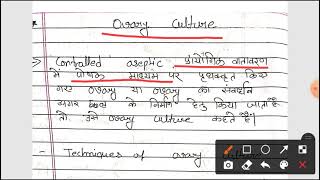 Ovary Culture
→ Controlled aseptic प्रायोगिक वातावरण
में पोषक माध्यम पर पृथक्कृत किए
गए ovary या ovary का संवर्धन
अगर के निर्माण हेतु किया जाता है
तो उसे ovary culture कहते है।
- Techniques of ovary